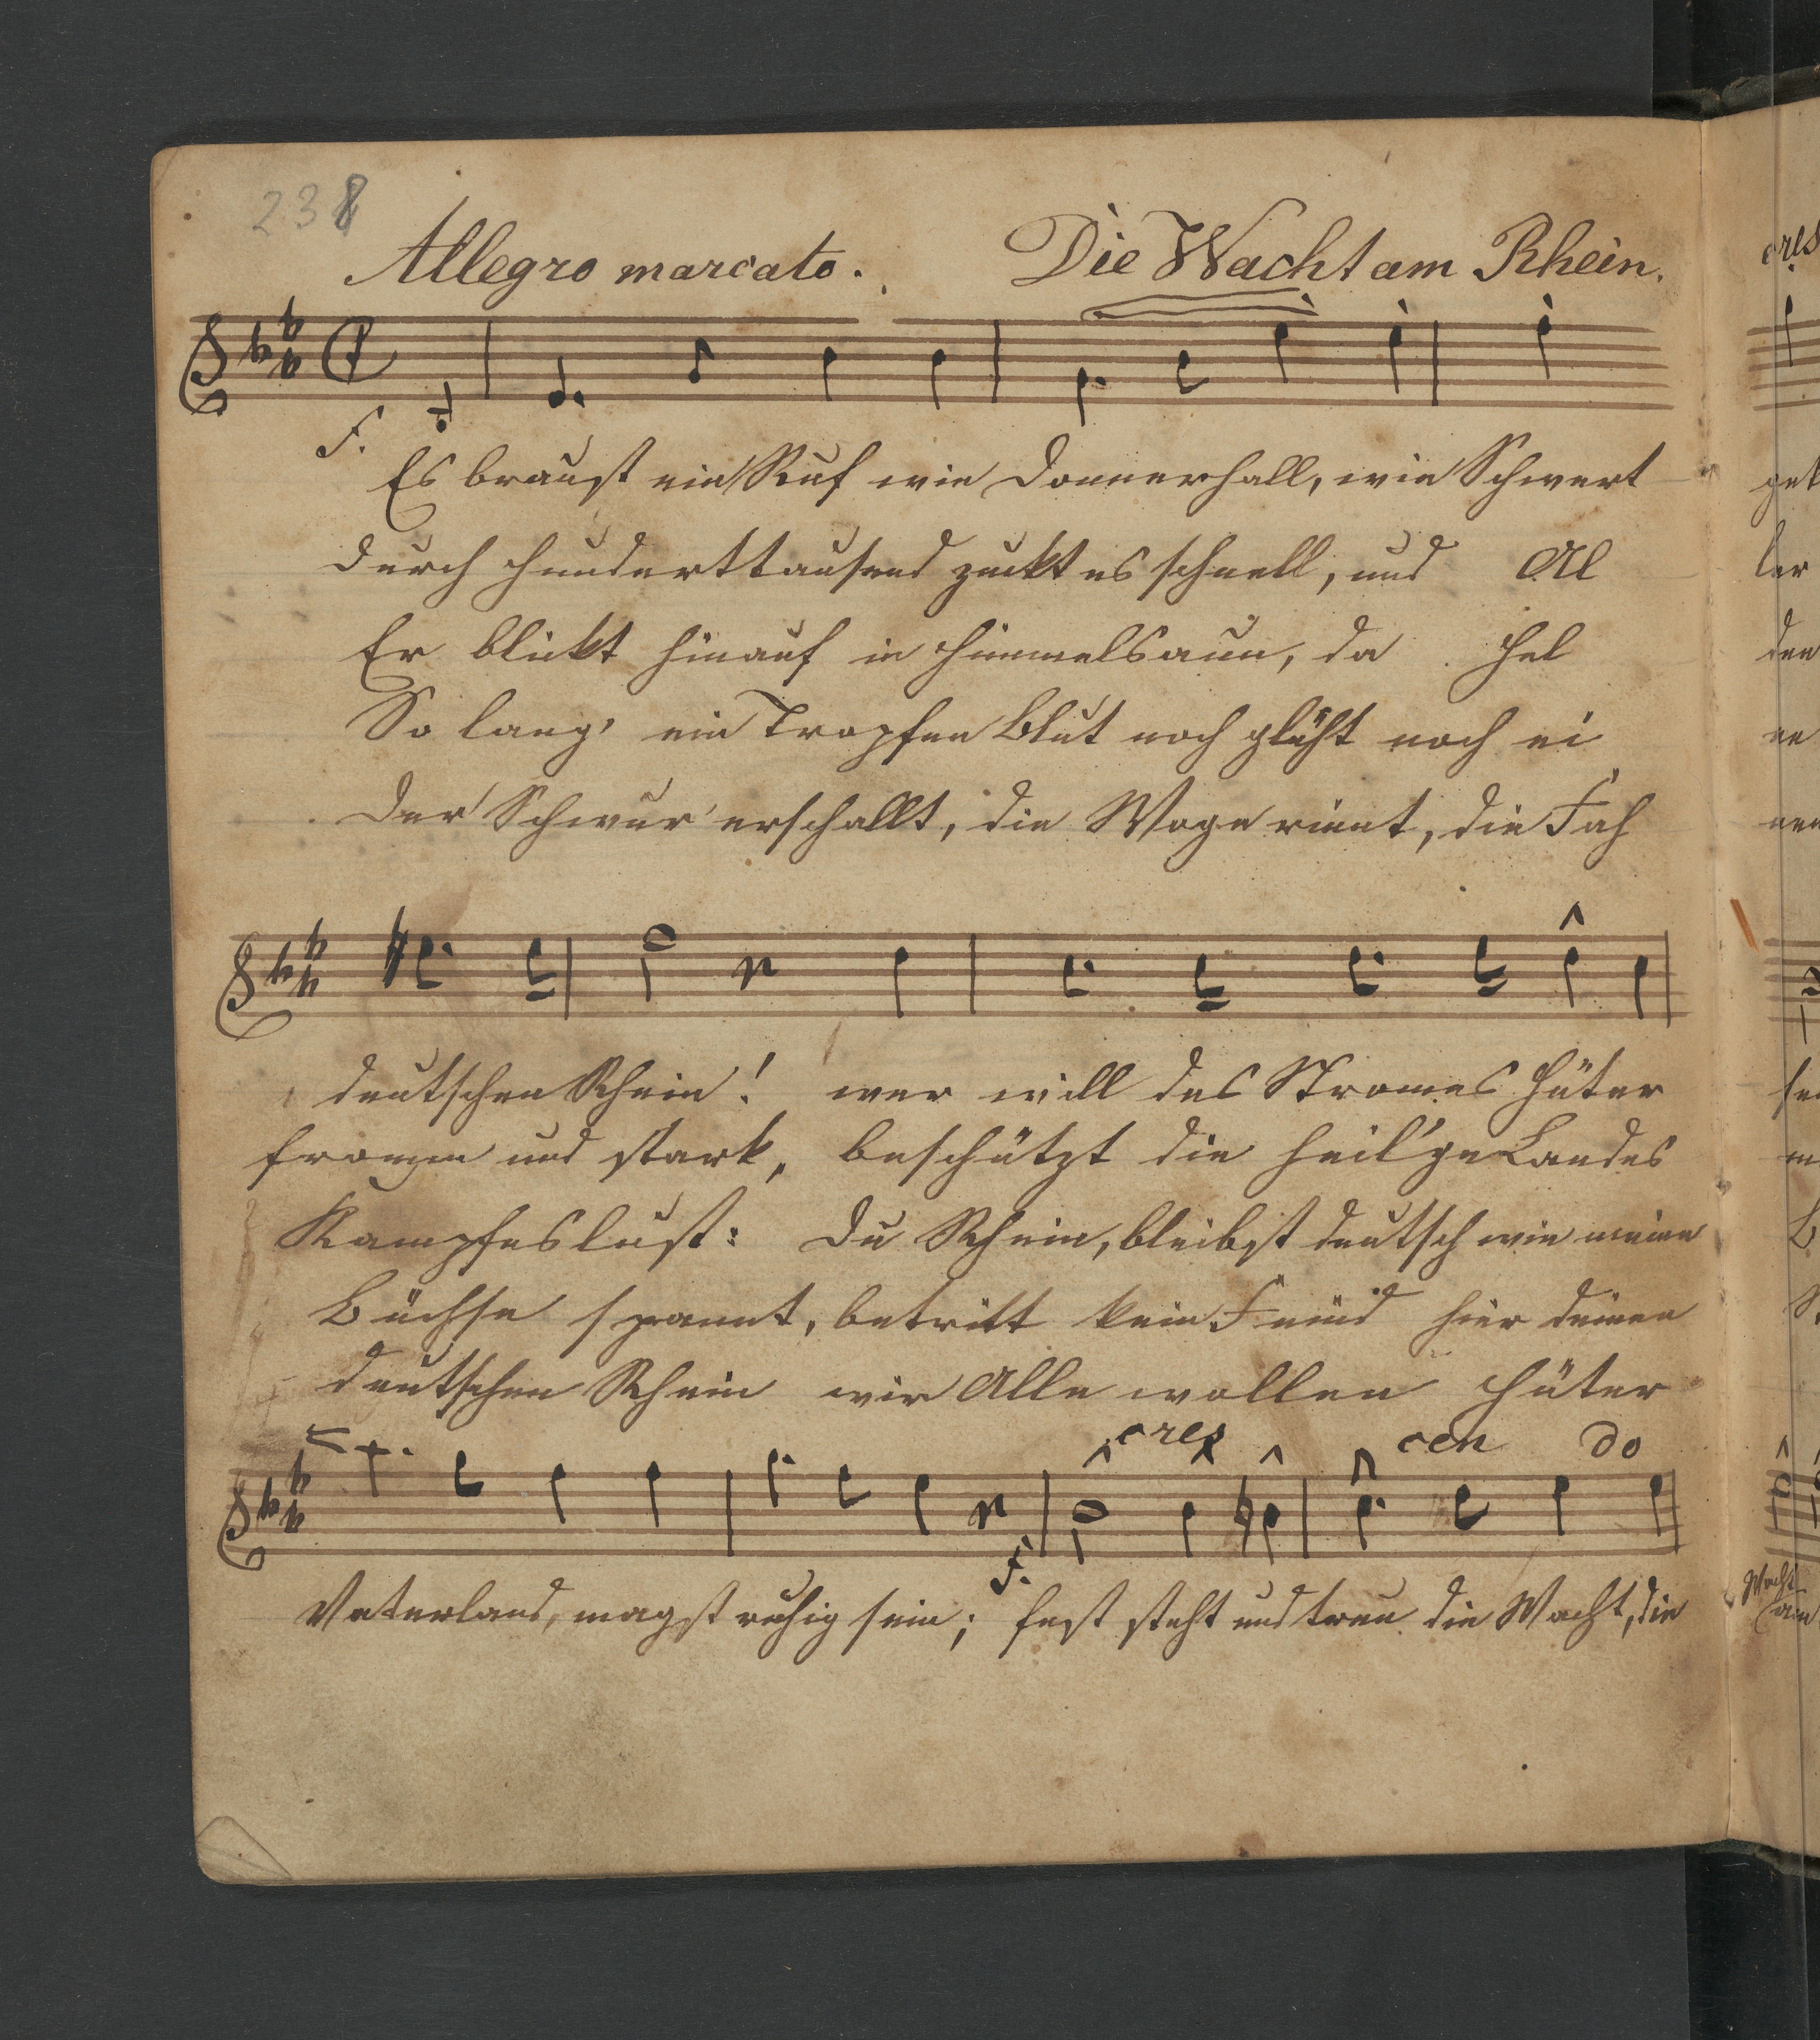 238
Allegro marcato. Die Wacht am Rhein.
f.
Es braust ein Ruf wie Donnerhall, wie Schwert
Durch Hunderttausend zuckt es schnell, und Al
Er blickt hinauf in Himmelsaun, da Hel
So lang' ein Tropfen Blut noch glüht noch ei
Der Schwur erschallt, die Woge rinnt, die Fah
deutschen Rhein! wer will des Stromes Hüter
fromm und stark, beschützt die heil'ge Landes
Kampfeslust: Du Rhein, bleibst deutsch wie meine
Büchse spannt, betritt kein Feind hier deinen
deutschen Rhein wir Alle wollen Hüter
cres cen do
f.
Vaterland, magst ruhig sein; fest steht und treu die Wacht, die
cres
get
ler
den
ne
nen